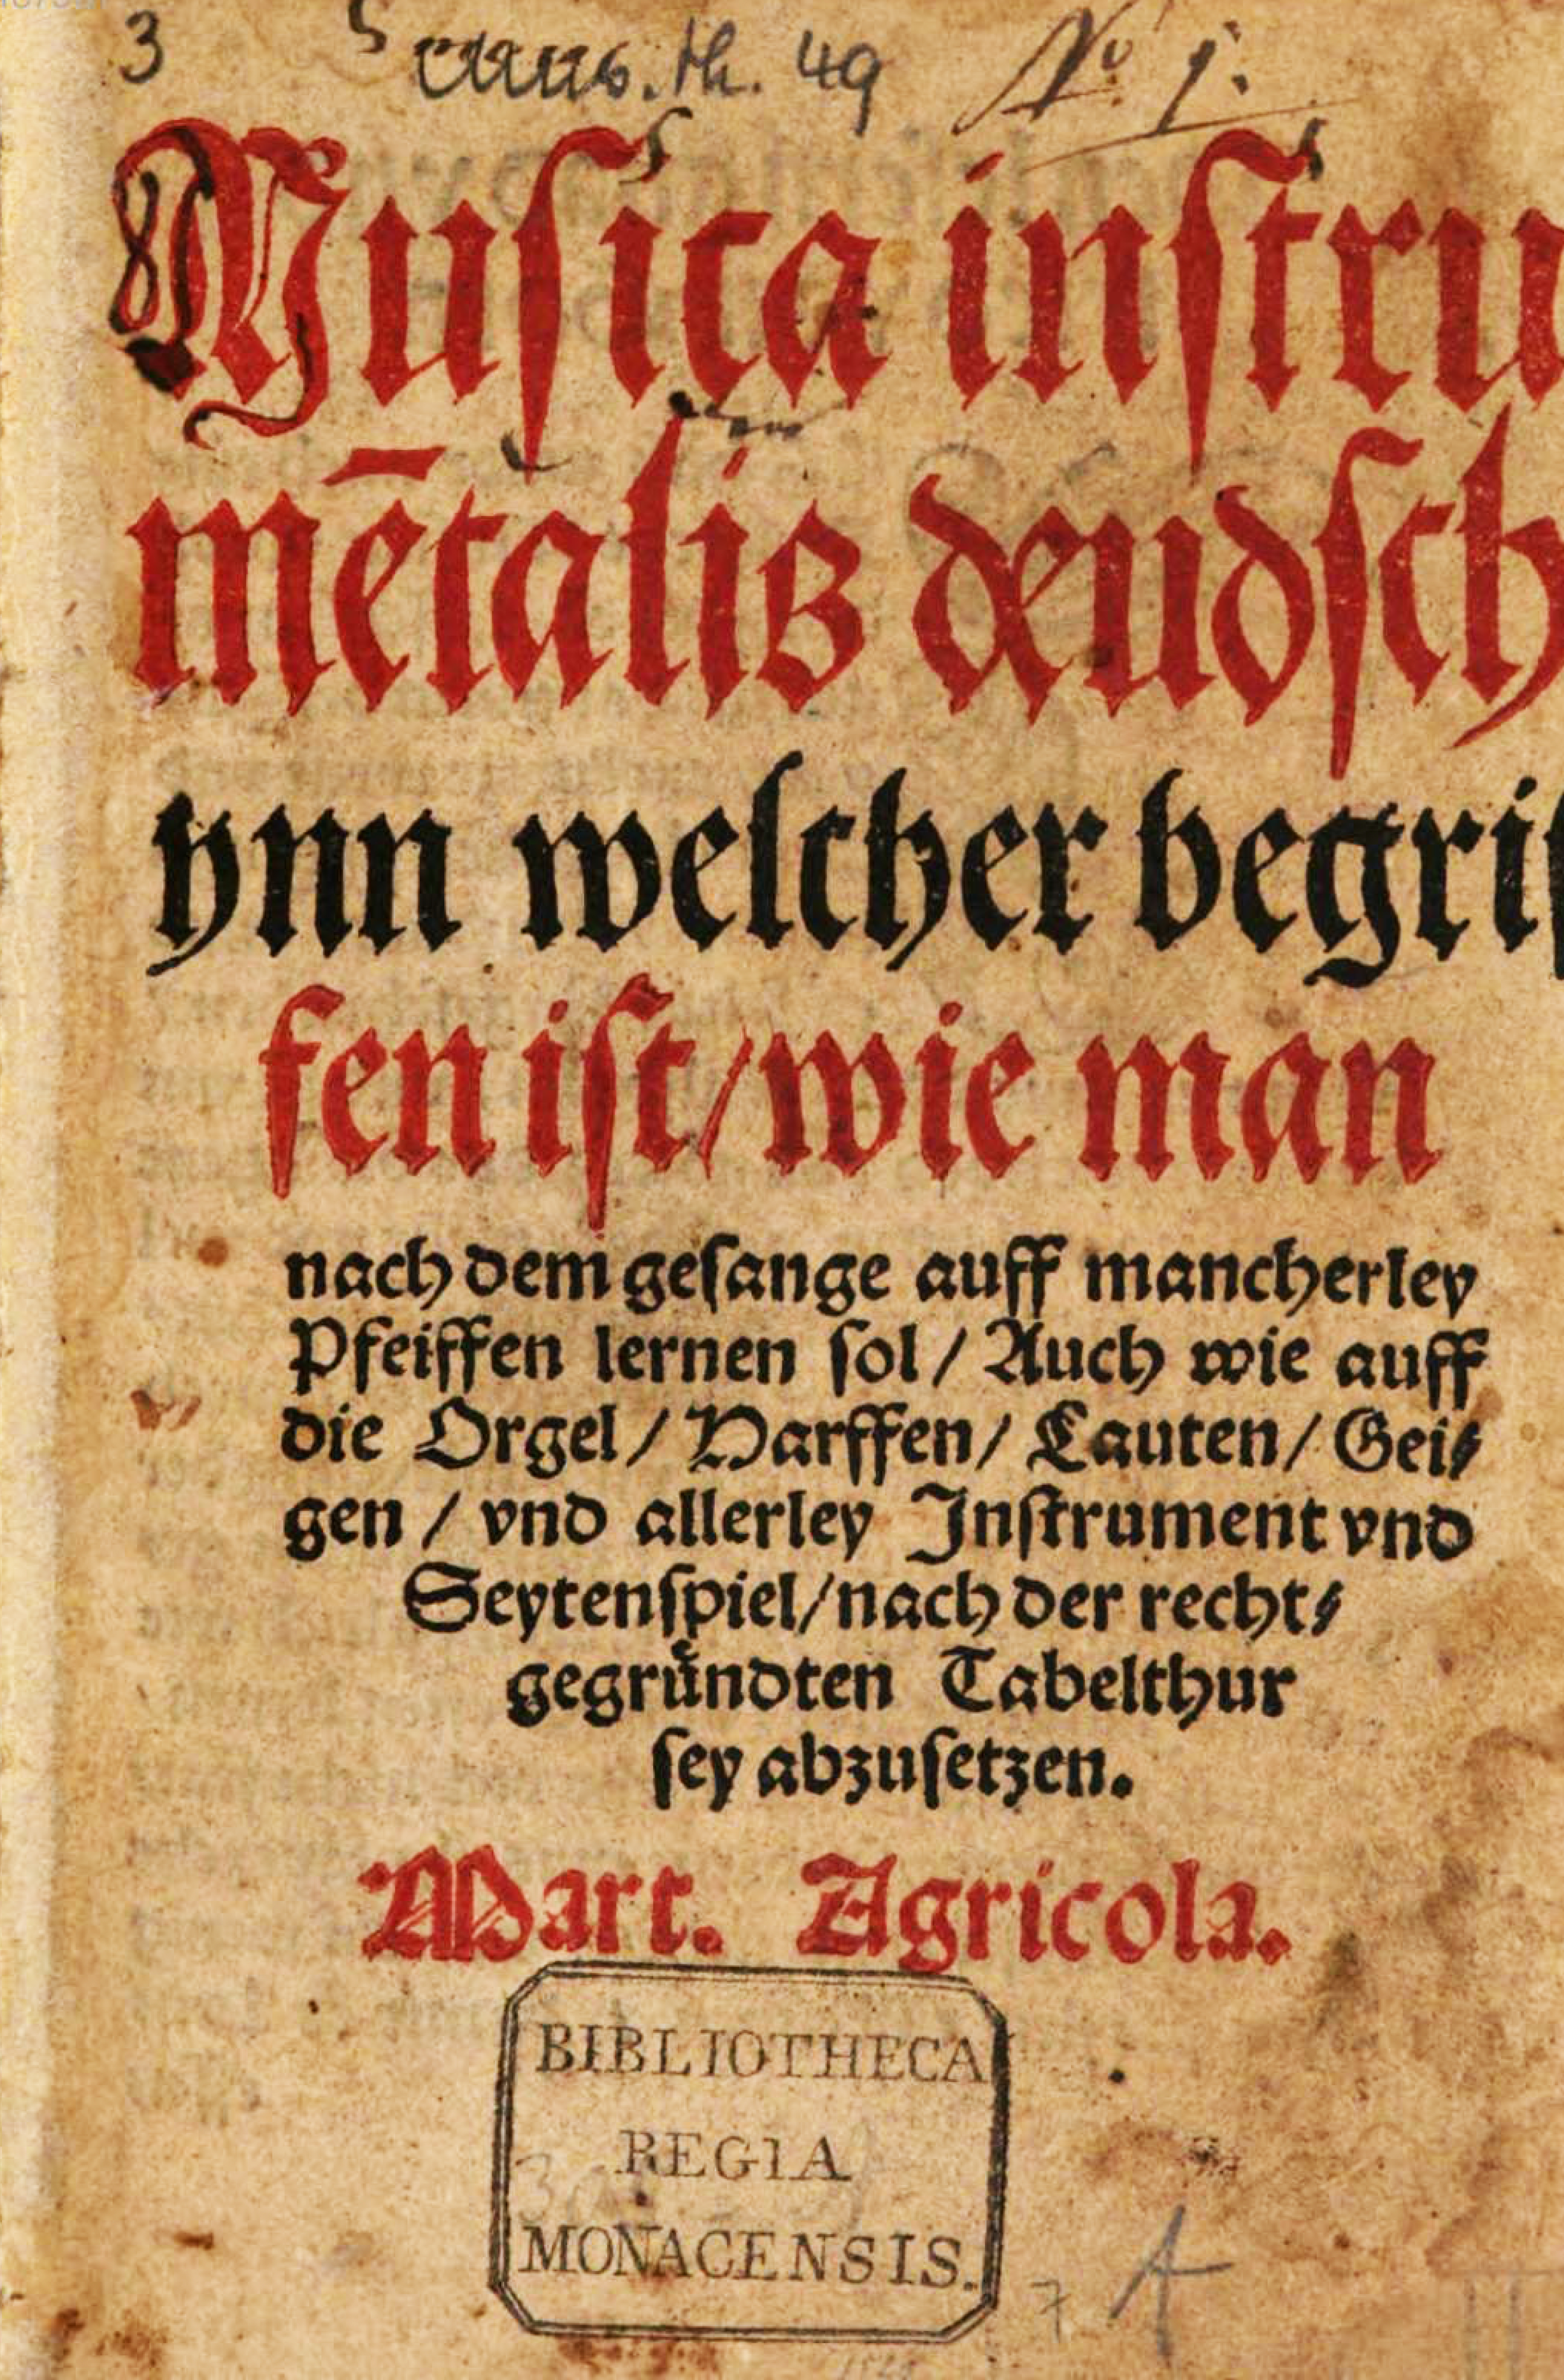 3 Mus. th. 49 No 1.
Muſica inſtru
mētalis deudſch
ynn welcher begrif
fen iſt/wie man
nach dem geſange auff mancherley
Pfeiffen lernen ſol / Auch wie auff
die Orgel / Harffen / Lauten / Gei⸗
gen / vnd allerley Inſtrument vnd
Seytenſpiel/nach der recht⸗
gegruͤndten Tabelthur
ſey abzuſetzen.
Mart. Agricola.
BIBLIOTHECA
REGIA
MONACENSIS.
7 A